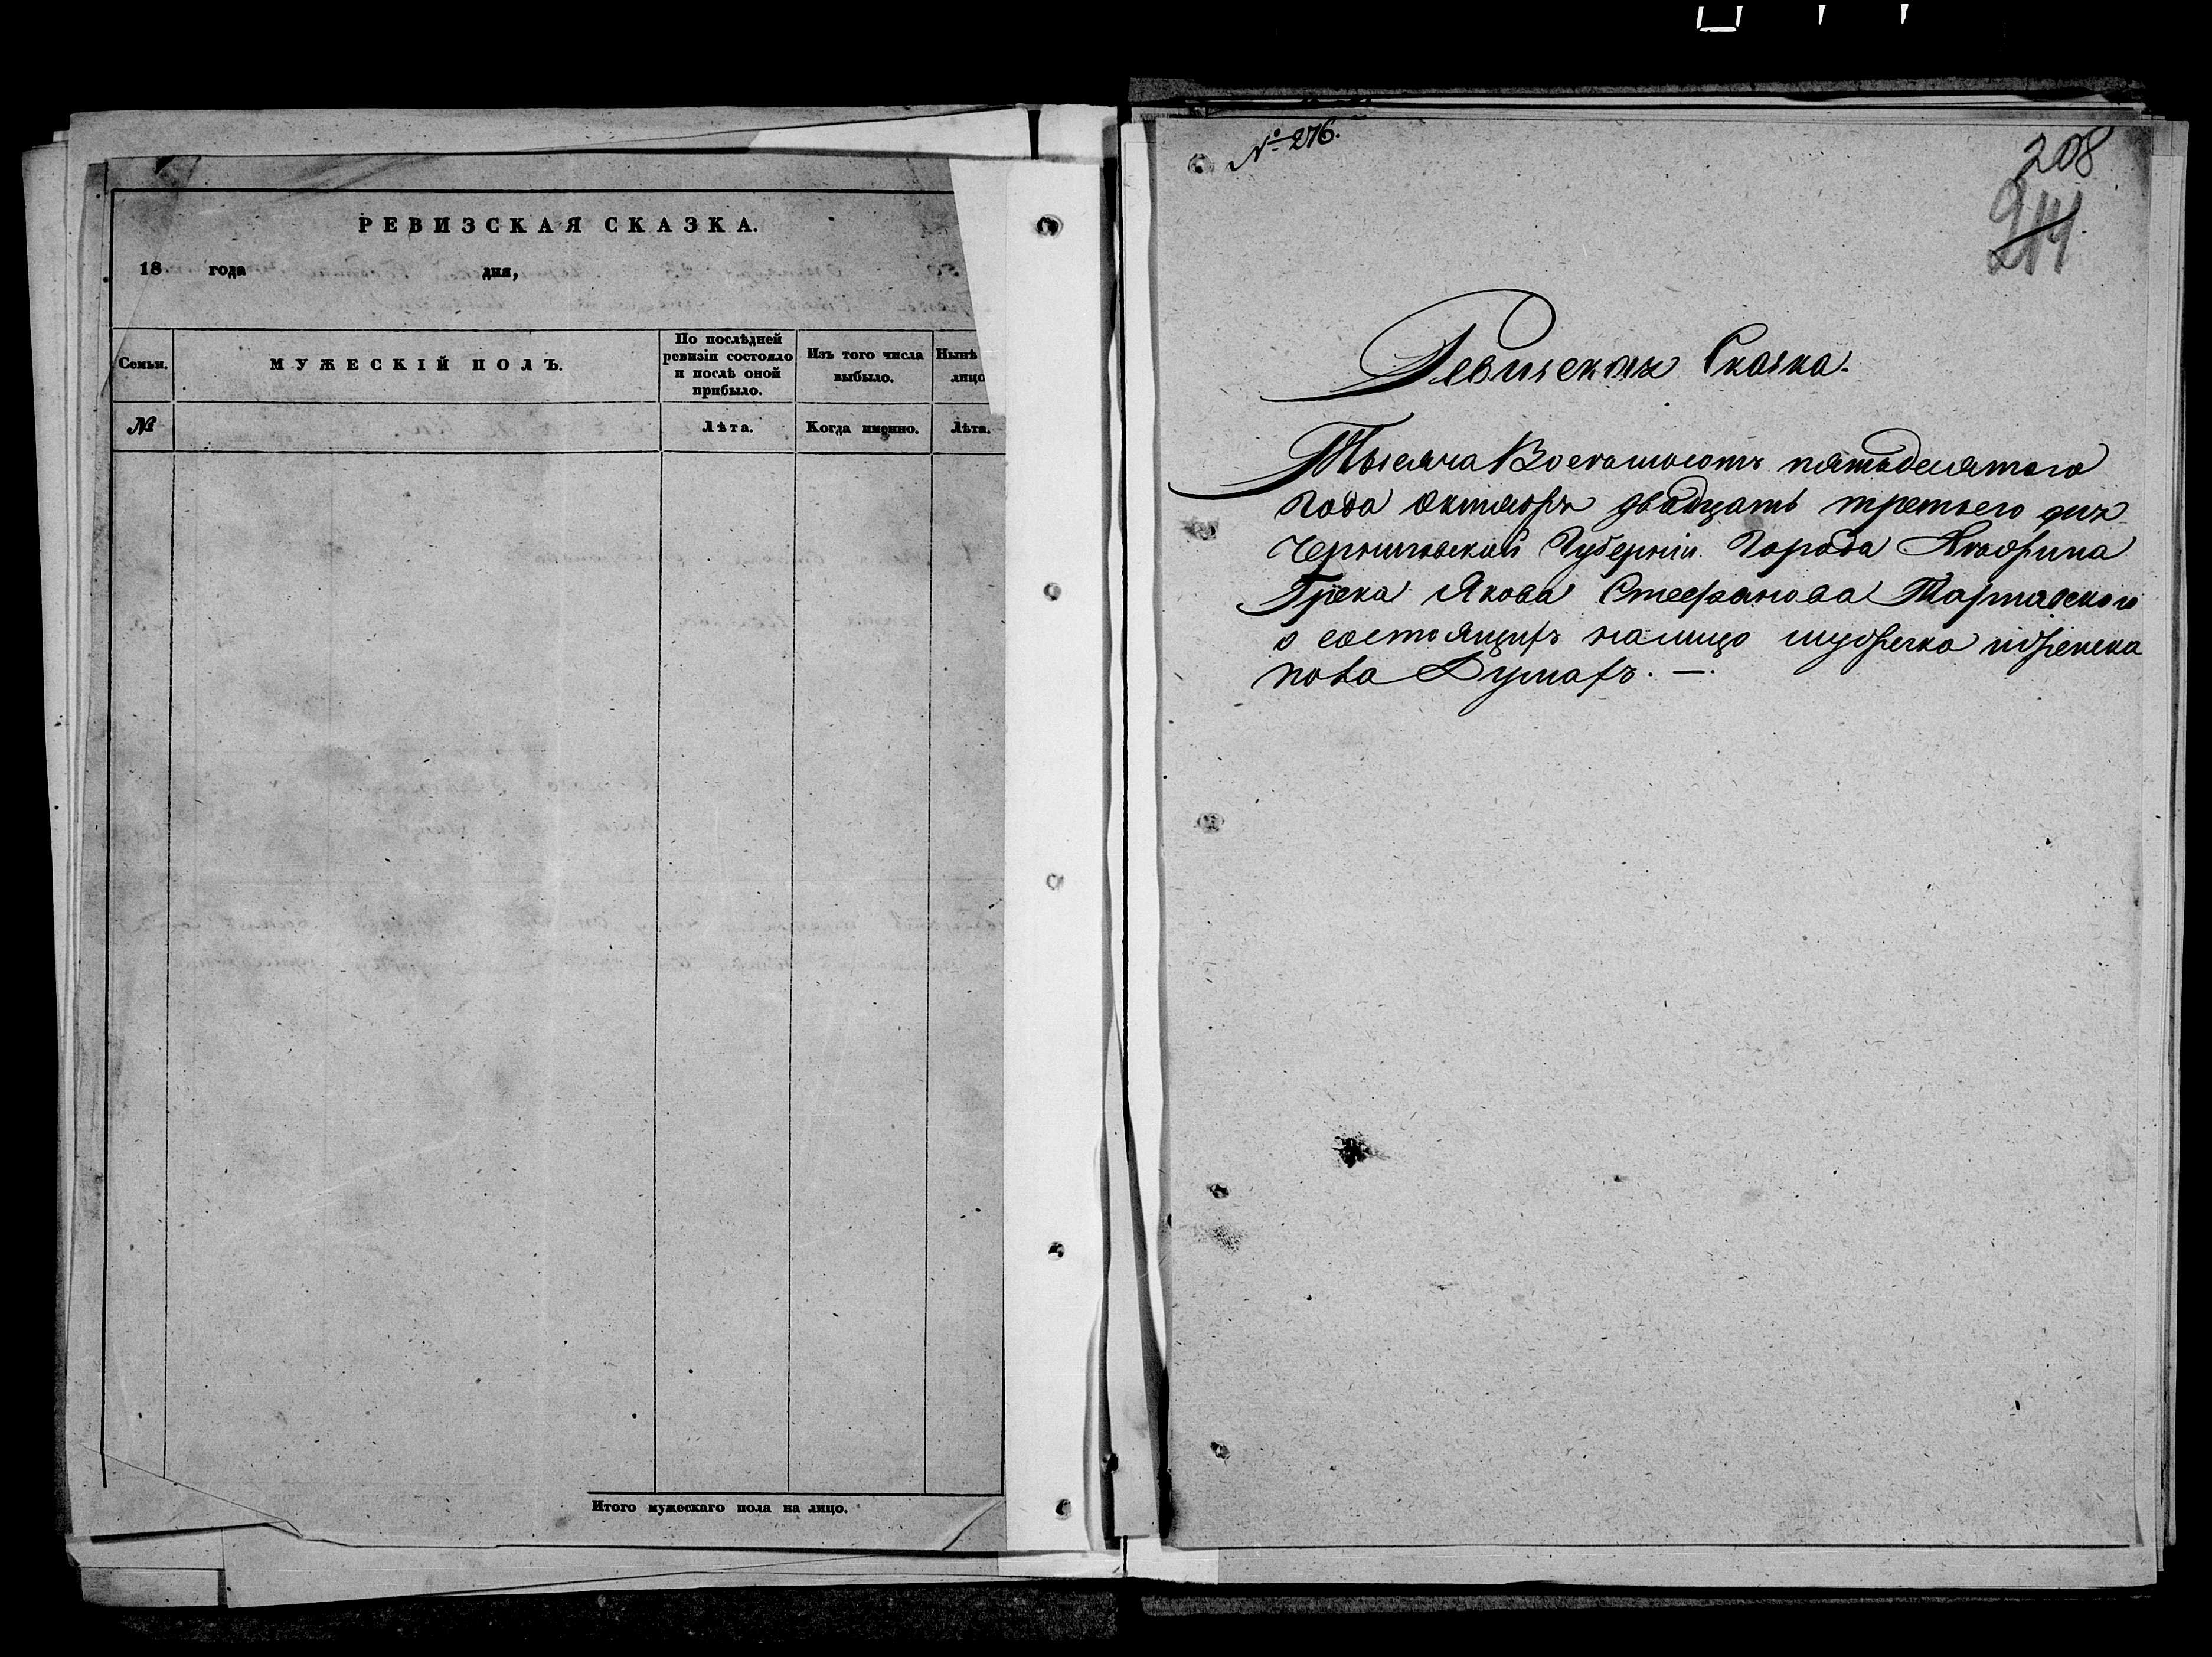 РЕВИЗСКАЯ СКАЗКА.
18 года дня,
Семьи.
МУЖЕСКІЙ ПОЛЪ.
По послѣдней
ревизіи состояло
и послѣ оной
прибыло.
Изъ того числа
выбыло.
Нынѣ
лицо
№
Лѣта.
Когда именно.
Лѣта.
Итого мужескаго пола на лицо.
№ 276.
208
Ревизская Сказка.
Тысяча Восемьсотъ пятьдесятого
Года Октября двадцать третьего дня
Черниговской Губерніи Города Нѣжина
Грека Якова Стефанова
о состоящихъ налицо мужеска иженска
пола Душахъ. —